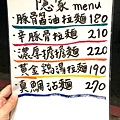 隱家 menu
・豚骨醬油拉麵 180
・辛豚骨拉麵 210
・濃厚擔擔麵 220
・黃金雞湯拉麵 190
・真鯛沾麵 270